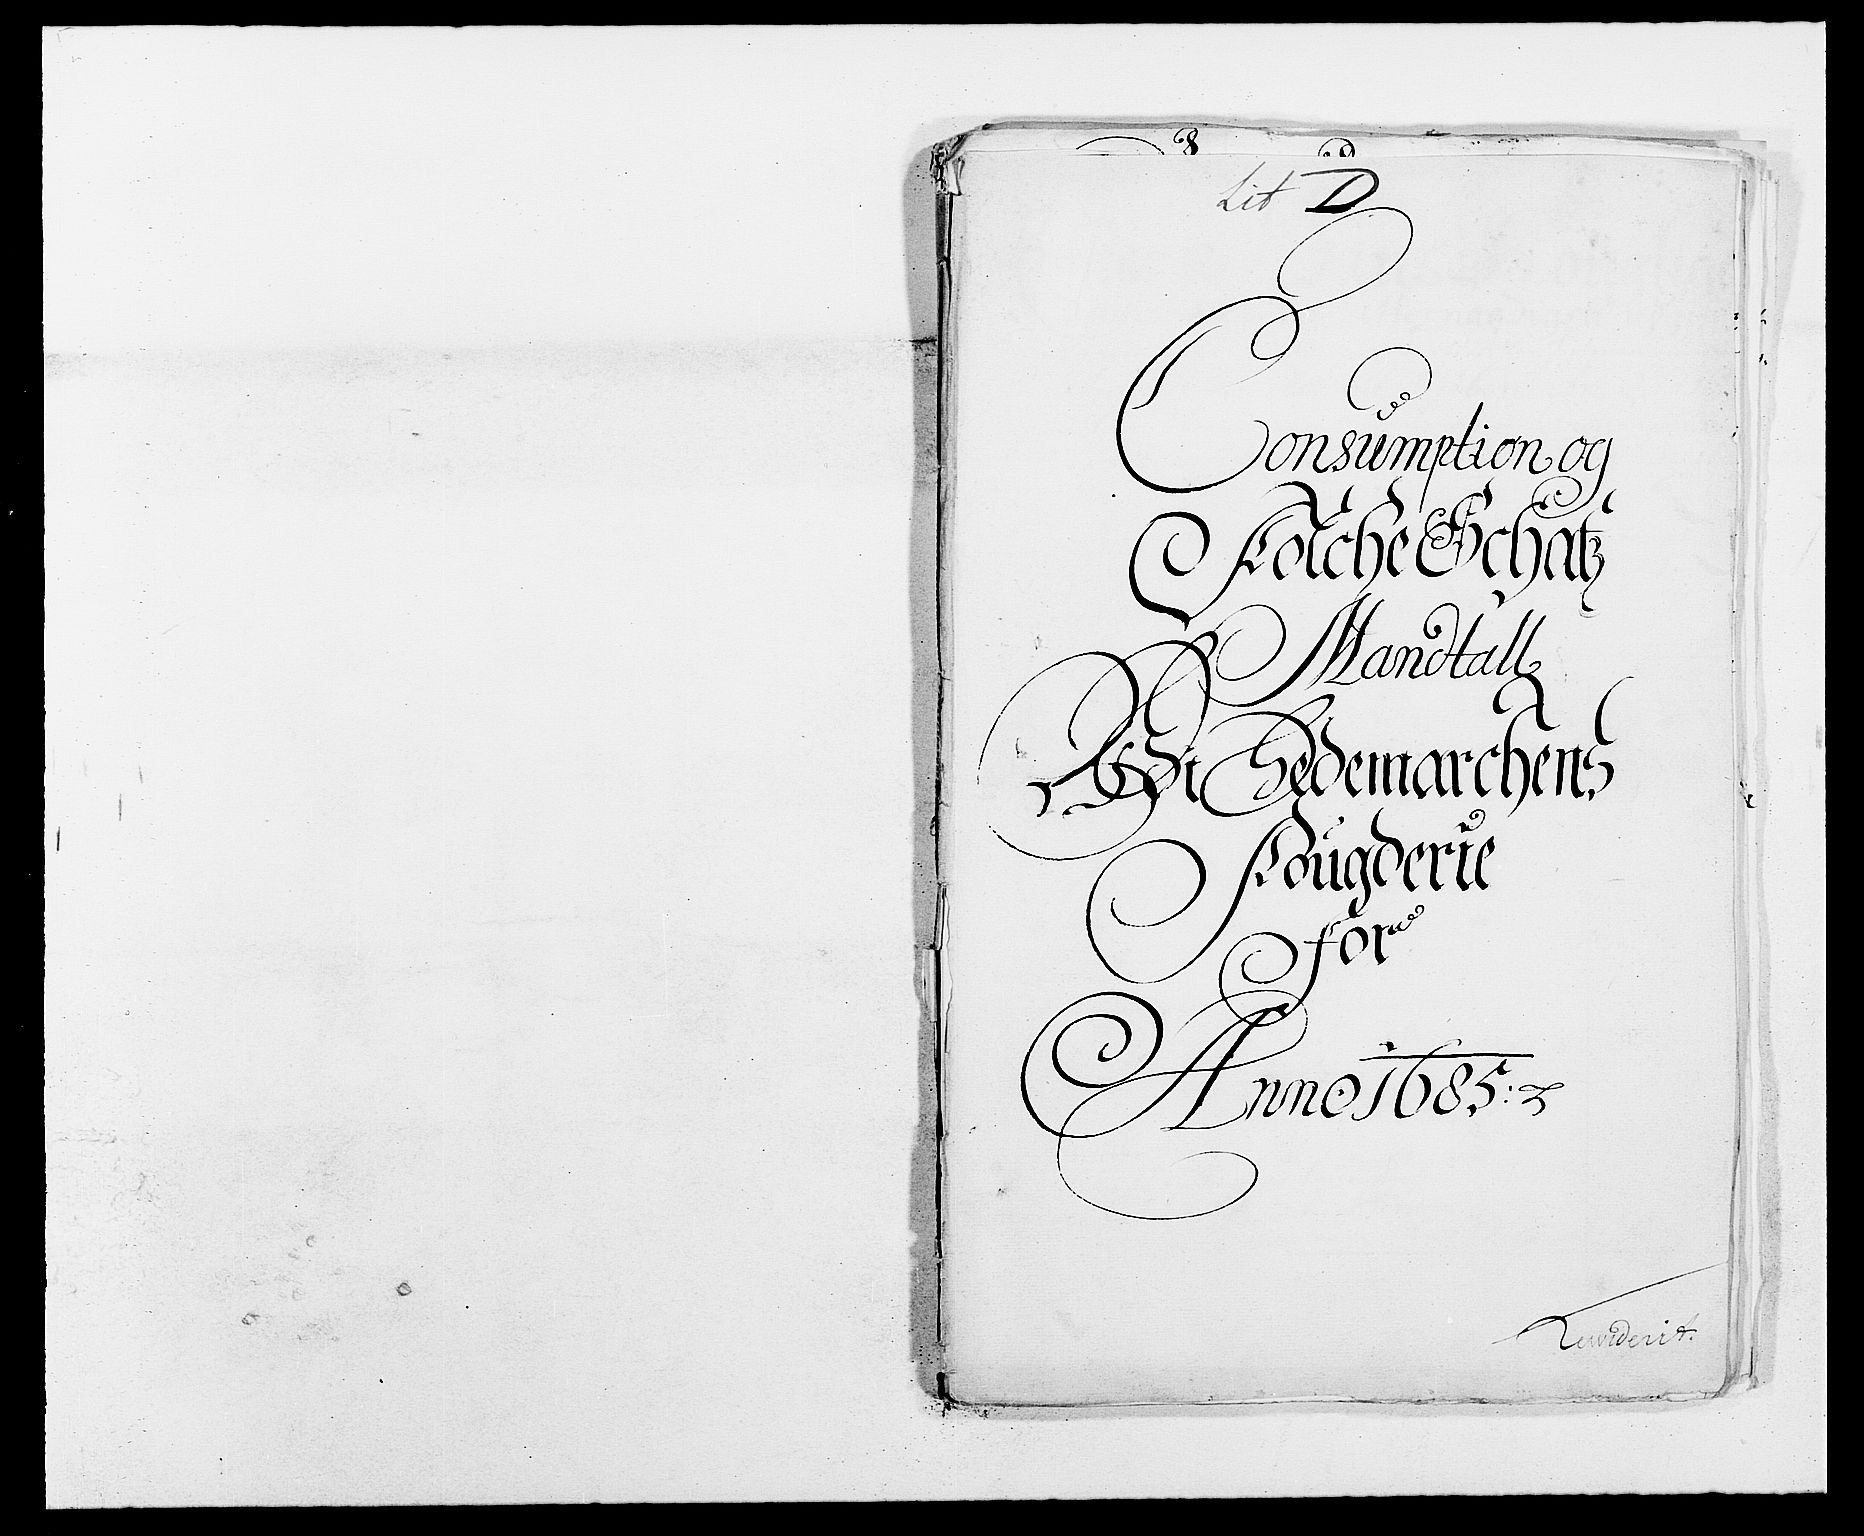 Lit D
Consumption og
Folche Schatz
Mandtall
Hedemarchens
Fougderie
for
Anno 1685:
Reviderit.